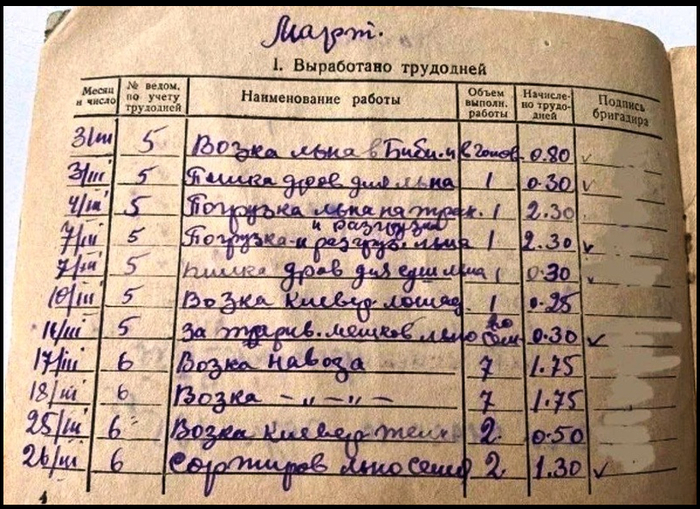 Март.
1. Выработано трудодней
Месяц и число № ведом. по учету трудодней Наименование работы Объем выполн. работы Начисле-но трудо-дней Подпись бригадира
3/III 5 Возка льна в 0.80 ✓
3/III 5 Пилка дров для льна 1 0.30 ✓
4/III 5 Погрузка льна на трак. 1 2.30
и разгрузка
7/III 5 Погрузка и разгруз. льна 1 2.30 ✓
7/III 5 Пилка дров для суш льна 1 0.30 ✓
10/III 5 Возка клевер. лошад. 1 0.25
5 мешков льно 0.30 ✓
17/III 6 Возка навоза 7 1.75
18/III 6 Возка -"-"- 7 1.75
25/III 6 Возка клевер 2. 0.50
26/III 6 Сортиров льносемя 2. 1.30 ✓